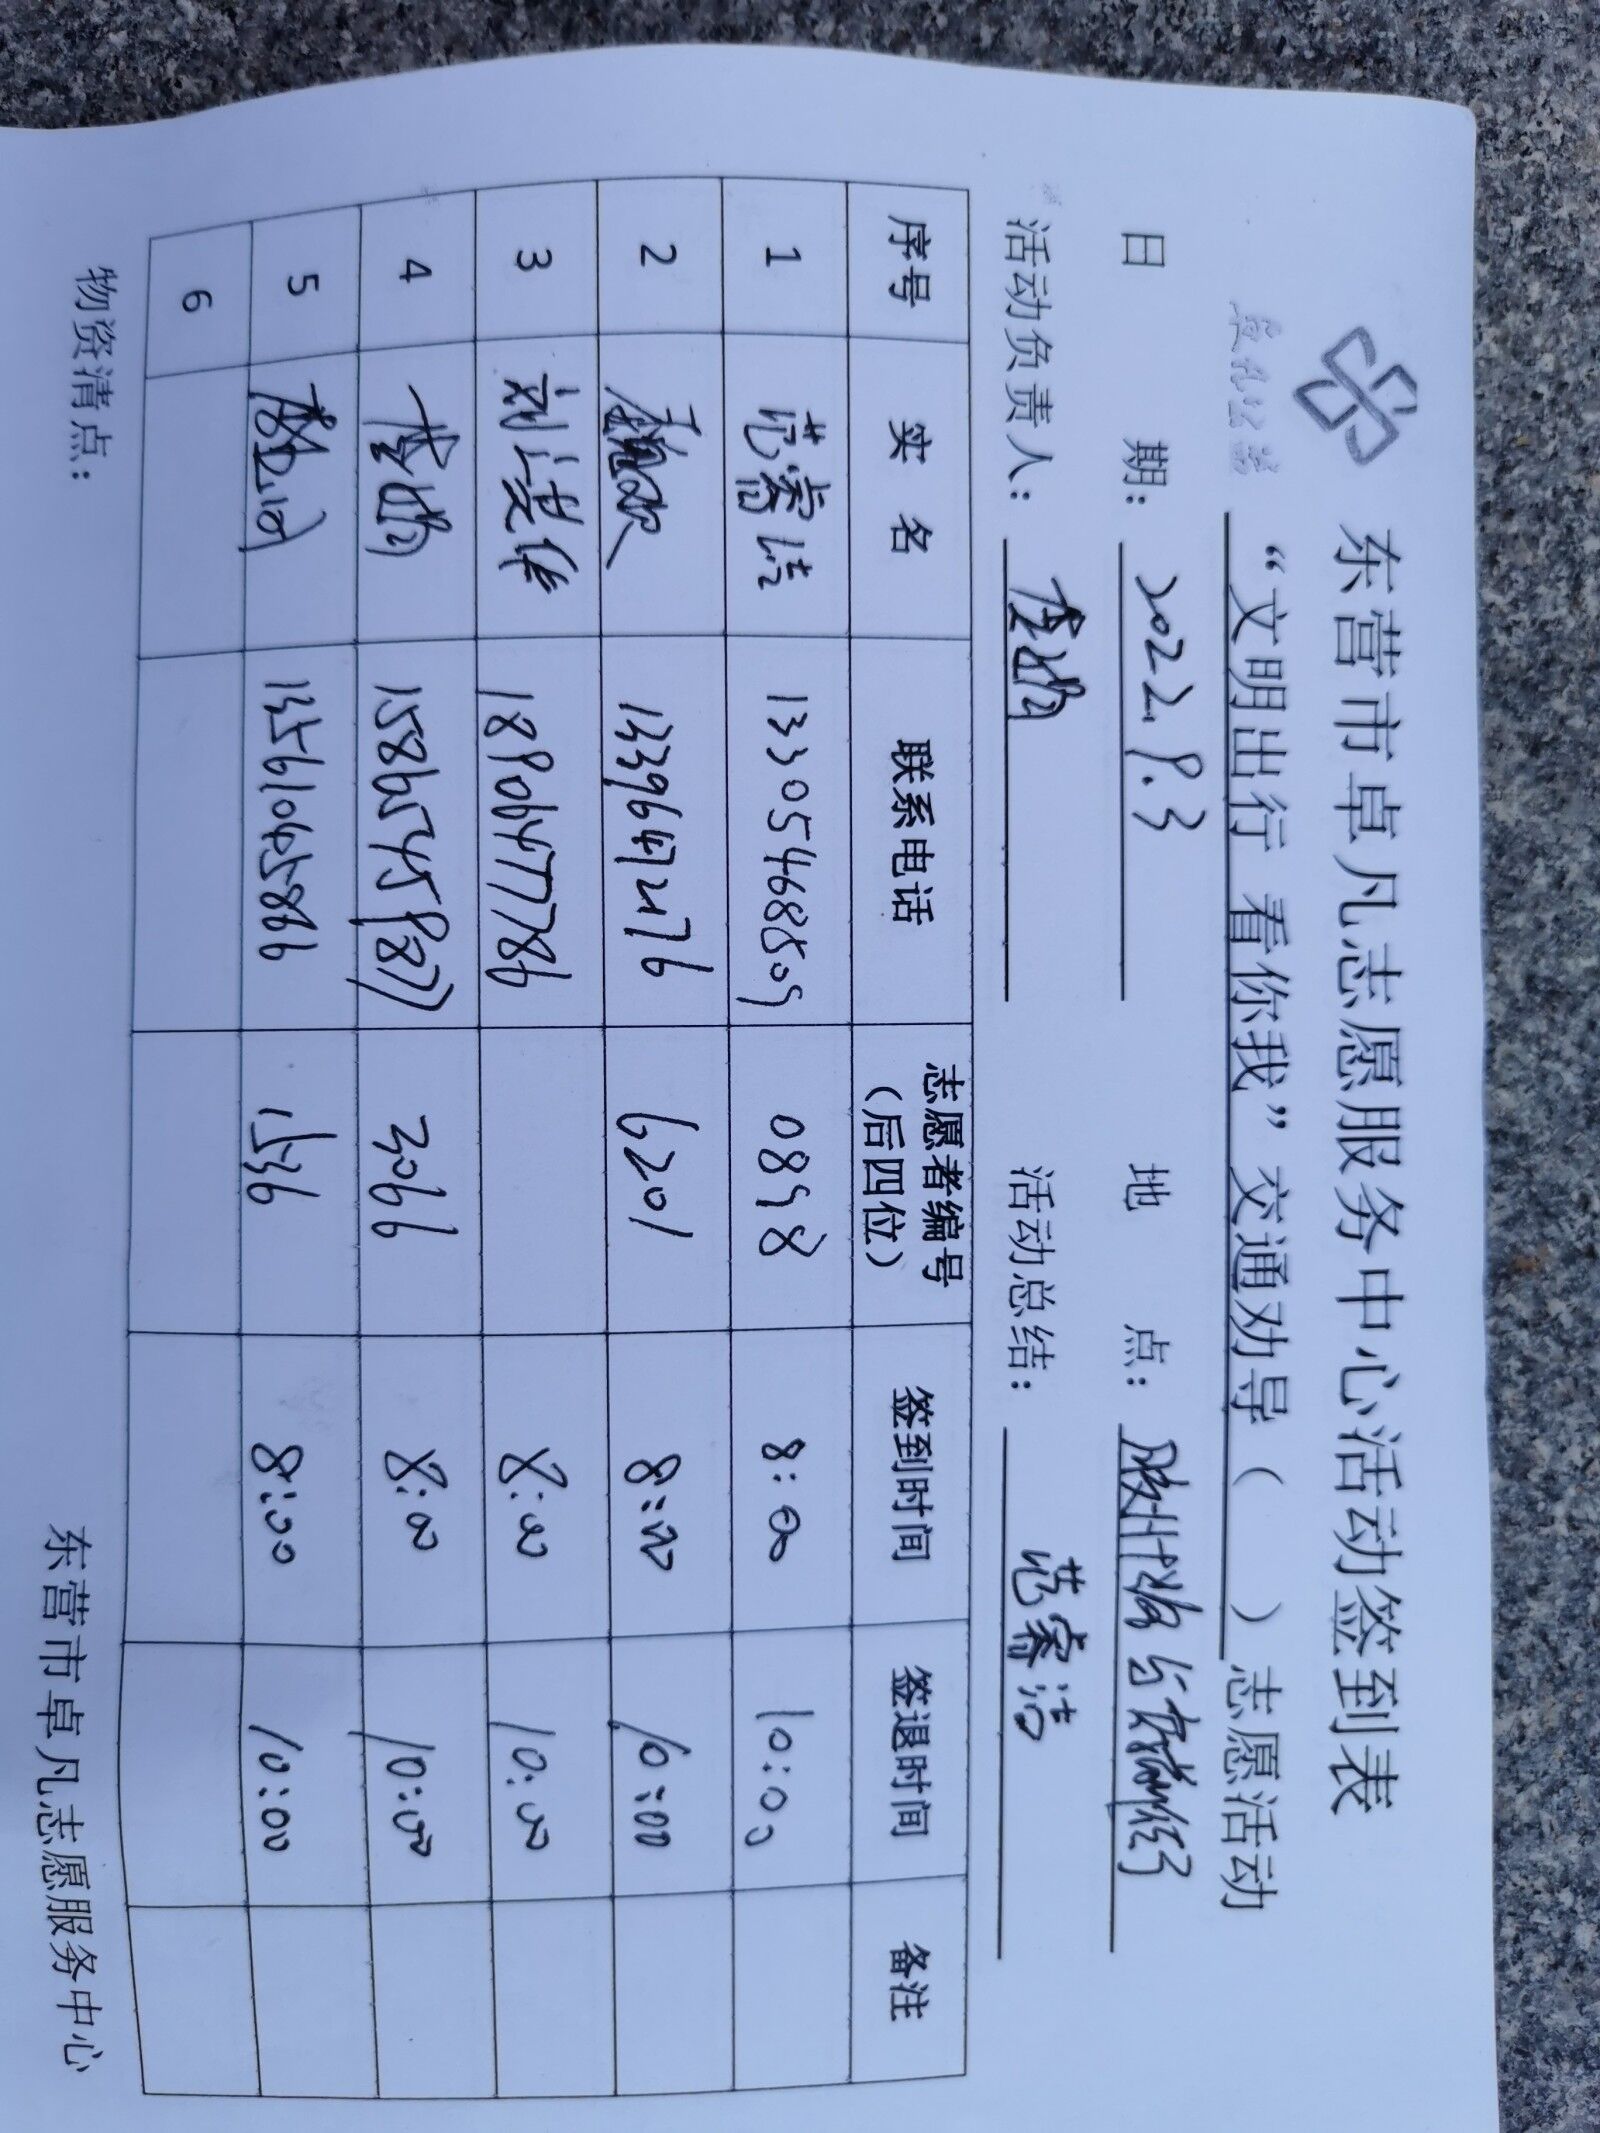 东营市卓凡志愿服务中心活动签到表
“文明出行 看你我”交通劝导（ ）志愿活动
日 期：2022.9.3 地 点：胶州路与
活动负责人： 活动总结：范睿洁
序号 实 名 联系电话 志愿者编号（后四位） 签到时间 签退时间 备注
1 范睿洁 13305468509 0898 8:00 10:00
2 13396471276 6201 8:00 10:00
3 刘 18906477786 8:00 10:00
4 3066 8:00 10:00
5 13561065866 1536 8:00 10:00
6
物资清点：
东营市卓凡志愿服务中心